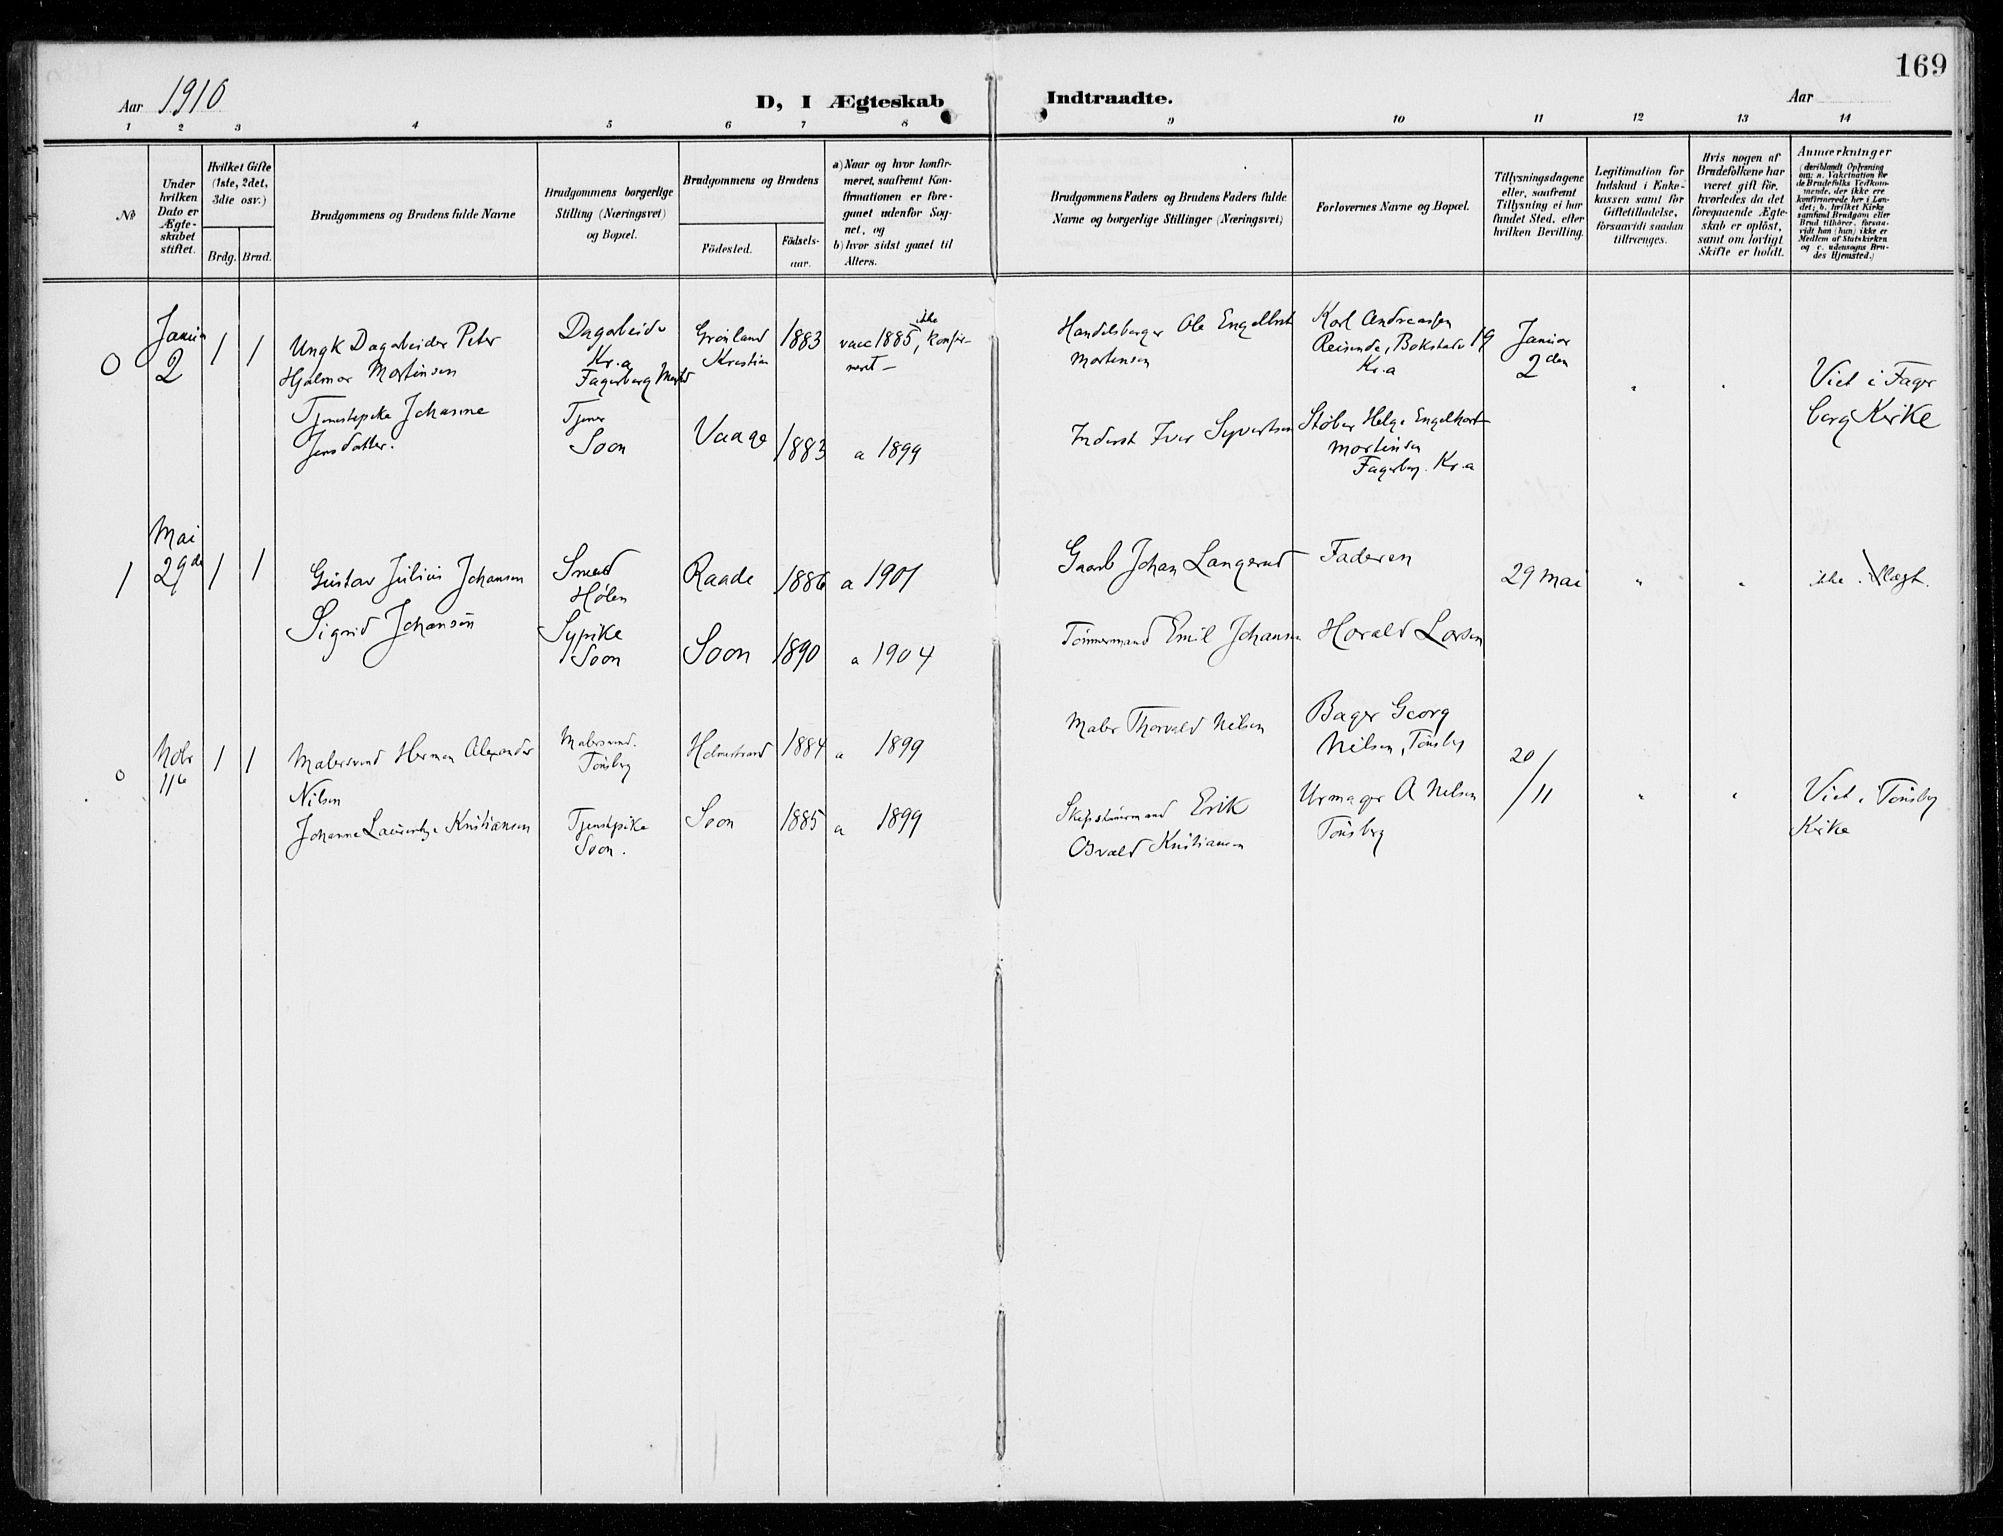 169
Aar 1910
D, I Ægteskab Indtraadte.
Aar
1 2 3 4 5 6 7 8 9 10 11 12 13 14
No
Under hvilken Dato er Ægteskabet stiftet.
Hvilket Gifte (1ste, 2det, 3die osv.)
Brdg. Brud.
Brudgommens og Brudens fulde Navne
Brudgommens borgerlige Stilling (Næringsvei) og Bopæl.
Brudgommens og Brudens
Födested.
Födselsaar.
a) Naar og hvor konfirmeret, saafremt Konfirmationen er foregaaet udenfor Sognet, og
b) hvor sidst gaaet til Alters.
Brudgommens Faders og Brudens Faders fulde Navne og borgerlige Stillinger (Næringsvei)
Forlovernes Navne og Bopæl.
Tillysningsdagene eller, saafremt Tillysning ei har fundet Sted, efter hvilken Bevilling.
Legitimation for Indskud i Enkekassen samt for Giftetilladelse, forsaavidt saadan tiltrænges.
Hvis nogen af Brudefolkene har været gift för, hvorledes da det foregaaende Ægteskab er oplöst, samt om lovligt Skifte er holdt.
Anmærkninger
(deriblandt Oplysning om: a. Vakcination for de Brudefolks Vedkommende, der ikke ere konfirmerede her i Landet; b. hvilket Kirkesamfund Brudgom eller Brud tilhörer, forsaavidt han (hun) ikke er Medlem af Statskirken og c. udensogns Brudes Hjemsted.)
0
Januar
2
1 1
Ungk Dagarbeider Peter
Hjalmar Martinsen
Dagarbeider
Kr.a
Fagerborg
Grønland
Kristian
1883
vacc 1885, ikke konfirmeret –
Handelsborger Ole Engelbret
Martinsen
Karl Andreassen
Reisende, Bokstadv 19
Kr.a
Januar
2 den
"
"
Viet i Fager
borg Kirke
Tjenestepike Johanne
Tjener
Soon
Vaage
1883
a 1899
Inderst Iver Syvertsen
Støber Helge Engelhart
Martinsen
Fagerborg. Kr.a
1
Mai
29de
1 1
Gustav Julius Johansen
Smed
Hølen
Raade
1886
a 1901
Gaarb Johan Langerud
Faderen
29 Mai
"
"
ikke i Slægt.
Sigrid Johansen
Sypike
Soon
Soon
1890
a 1904
Tømmermand Emil Johansen
Harald Larsen
0
Nobr
1 1
Malersvend Herman Alexander
Nilsen
Malersvend.
Tønsberg
Holmestrand
1884
a 1899
Maler Thorvald Nilsen
Bager Georg
Nilsen, Tønsbg
20/11
"
"
Viet i Tønsbg
Kirke
Johanne Laurentze Kristiansen
Tjenestpike
Soon.
Soon
1885
a 1899
Skipstømmermand Erik
Osvald Kristiansen
Urmager A Nelsen
Tønsberg